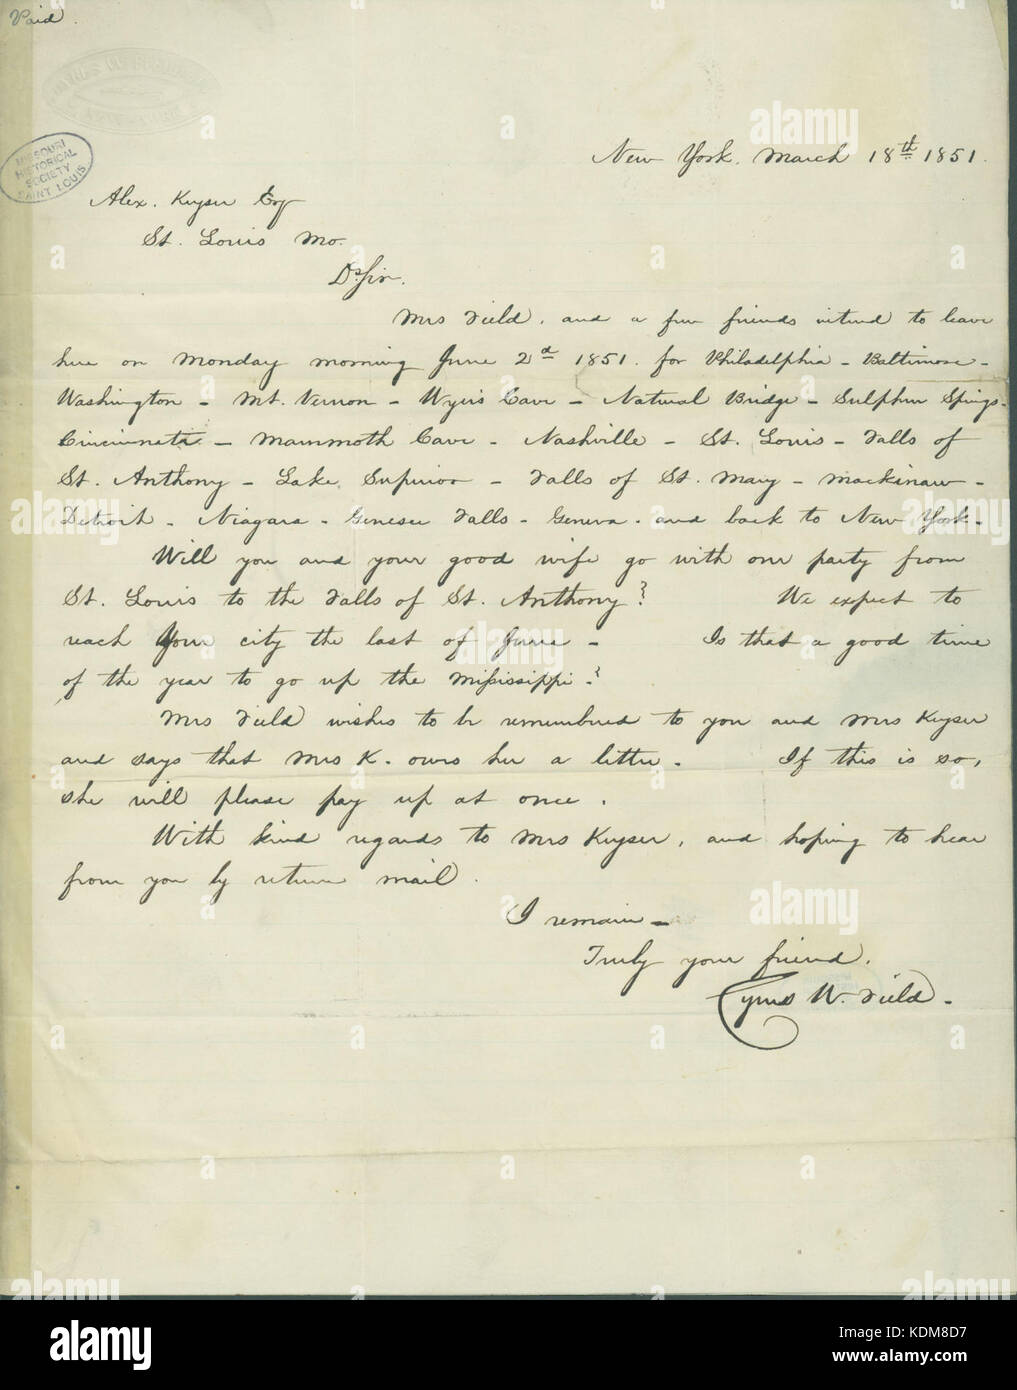 Paid.
MISSOURI
HISTORICAL
SOCIETY
SAINT LOUIS
New York. March 18th 1851.
Alex. Keyser Esq
St. Louis Mo.
Dr Sir.
Mrs Field, and a few friends intend to leave
here on Monday morning June 2d 1851. for Philadelphia - Baltimore -
Washington - Mt. Vernon - Wyers Cave - Natural Bridge - Sulphur Springs -
Cincinnati - Mammoth Cave - Nashville - St. Louis - Falls of
St. Anthony - Lake Superior - Falls of St. Mary - Mackinaw -
Detroit - Niagara - Genesee Falls - Geneva - and back to New York -
Will you and your good wife go with our party from
St. Louis to the Falls of St. Anthony? We expect to
reach your city the last of June - Is that a good time
of the year to go up the Mississippi -?
Mrs Field wishes to be remembered to you and Mrs Keyser
and says that Mrs K. owes her a letter - If this is so,
she will please pay up at once.
With kind regards to Mrs Keyser, and hoping to hear
from you by return mail.
I remain -
Truly your friend.
Cyrus W. Field -
alamy
a
alamy
Image ID: KDM8D7
www.alamy.com